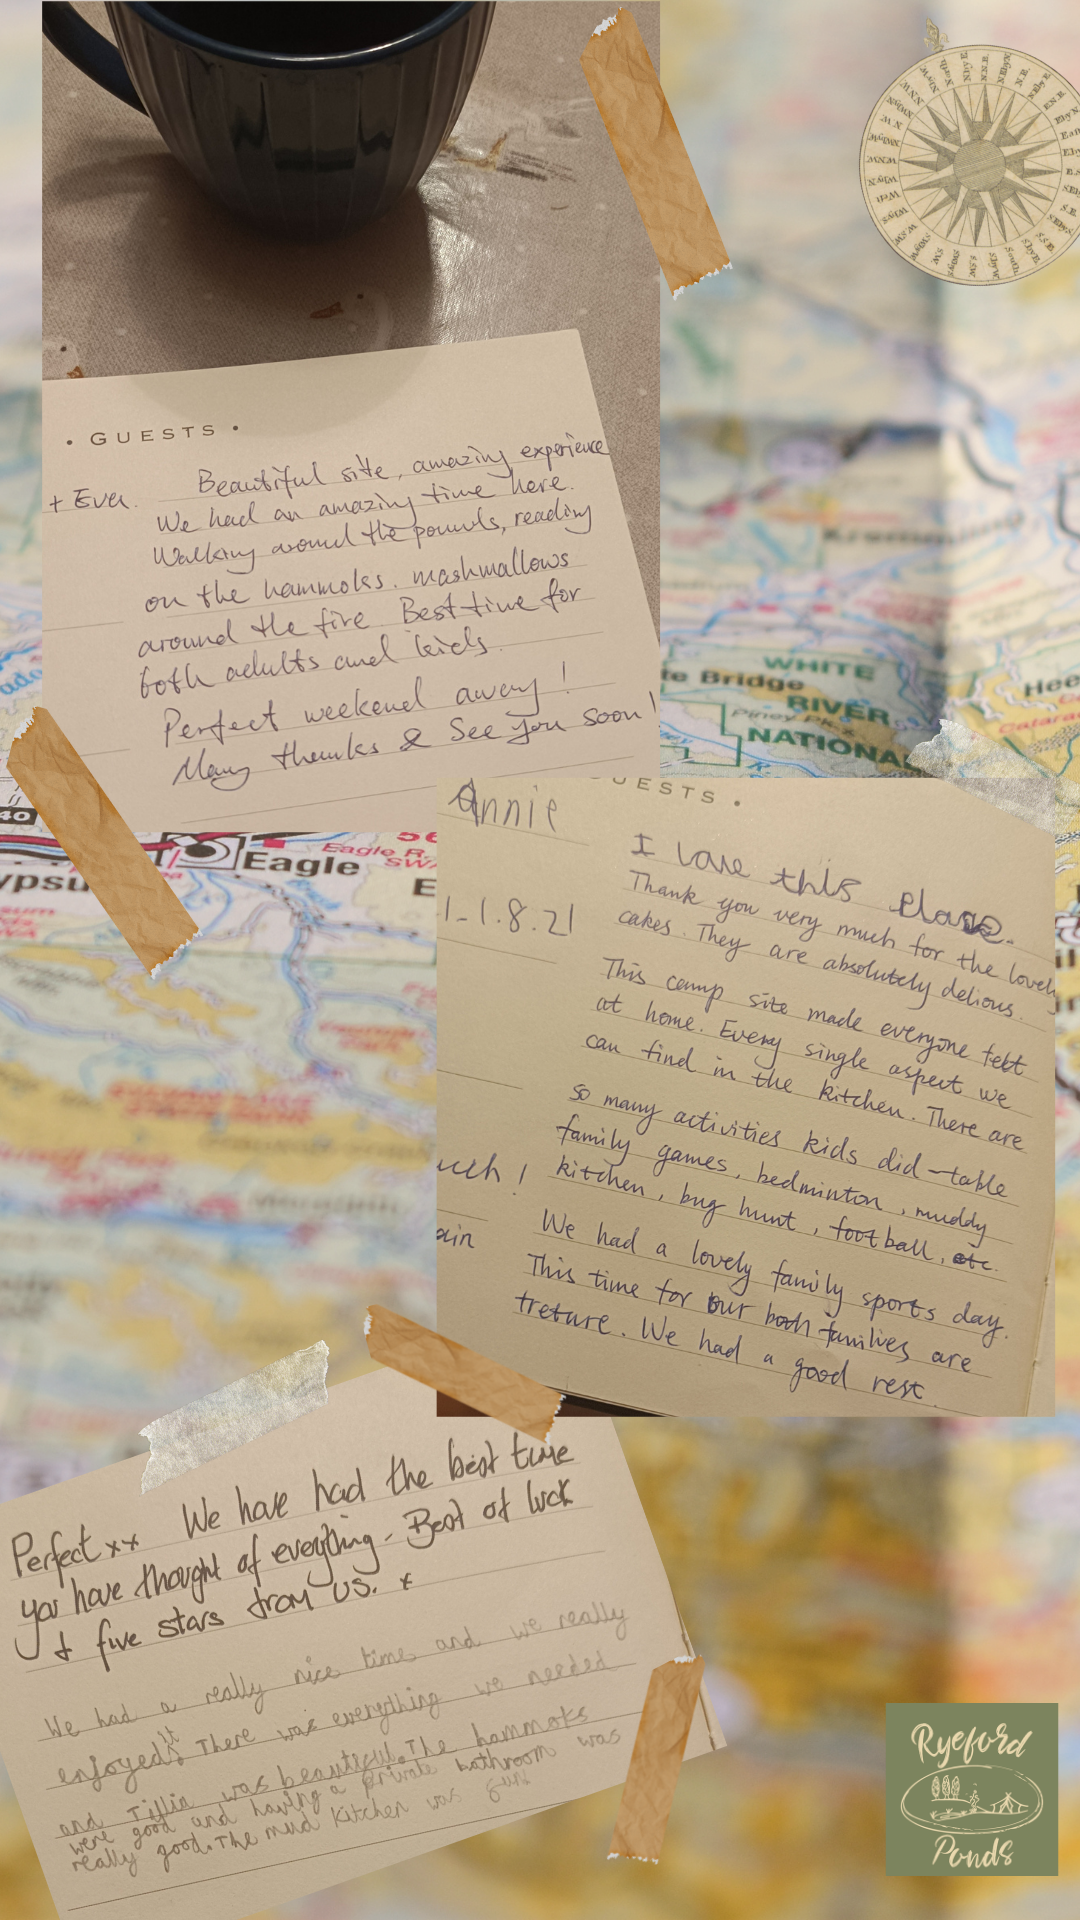 • GUESTS •
+ Eva.
Beautiful site, amazing experience
We had an amazing time here.
Walking around the pounds, reading
on the hammoks. mashmallows
around the fire. Best time for
both adults and kids.
Perfect weekend away!
Many thanks & See you soon!
WHITE
te Bridge
RIVER
NATIONAL
Hee
40
Eagle
Eagle R.
ypsu
UESTS •
Annie
I love this place.
1-1.8.21
Thank you very much for the lovely
cakes. They are absolutely delious.
This camp site made everyone felt
at home. Every single aspect we
can find in the kitchen. There are
so many activities kids did - table
family games, bedminton, muddy
kitchen, bug hunt, football, etc.
uch!
ain
We had a lovely family sports day.
This time for our both families are
treture. We had a good rest
Perfect xx We have had the best time
you have thought of everything - Best of luck
& five stars from us. x
We had a really nice time and we really
enjoyed it There was everything we needed
and Tillia was beautiful. The hammoks
were good and having a private bathroom was
really good. The mud kitchen was fun
Ryeford
Ponds